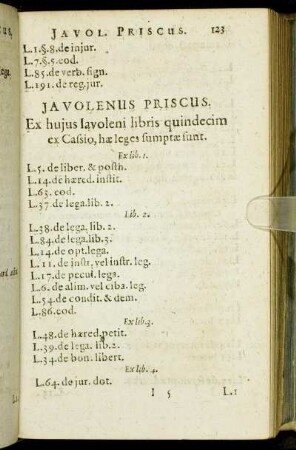 JAVOL. PRISCUS. 123
L.1.§.8.de injur.
L.7.§.5.eod.
L.85.de verb. sign.
L.191.de reg.jur.
JAVOLENUS PRISCUS.
Ex hujus Iavoleni libris quindecim
ex Cassio, hæ leges sumptæ sunt.
Ex lib. 1.
L.5.de liber. & posth.
L.14.de hæred. instit.
L.63. eod.
L.37 de lega.lib. 2.
Lib. 2.
L.38.de lega. lib. 2.
L.84.de lega.lib.3.
L.14.de opt.lega.
L.11.de instr. vel instr. leg.
L.17.de pecul. lega.
L.6.de alim. vel ciba. leg.
L.54.de condit. & dem.
L.86.eod.
Ex lib.3.
L.48.de hæred.petit.
L.39.de lega. lib.2.
L.34.de bon. libert.
Ex lib. 4.
L.64.de jur. dot.
I 5 L.1